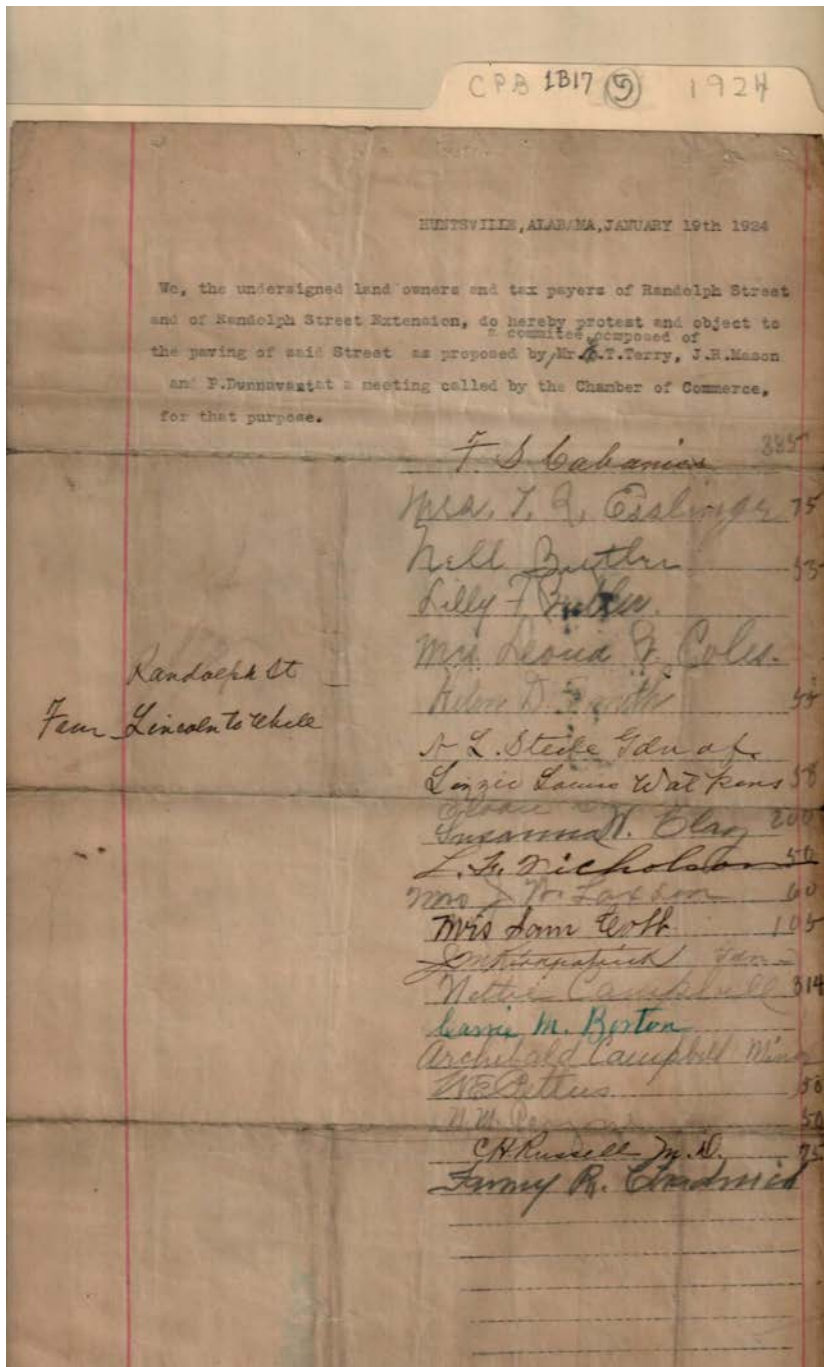 CPB 1B17 5 1924
HUNTSVILLE, ALABAMA, JANUARY 19th 1924
We, the undersigned land owners and tax payers of Randolph Street
and of Randolph Street Extension, do hereby protest and object to
a commitee, composed of
the paving of said Street as proposed by Mr. T.Terry, J.R.Mason
and P.Dunnavant at a meeting called by the Chamber of Commerce,
for that purpose.
T. S. Cabaniss 385
Mrs. T. Q. Esslinger 75
Nell Butler
Lilly F Butler.
Mrs Leona Coles.
Randolph St
Helen D. Smith 55
Lincoln to
A L. Steele Gdn of
Lizzie Watkins 58
Susanna W. Clay 200
L. F. Nicholson 50
Mrs J 60
Mrs Sam 105
J M Kirkpatrick
Nettie Campbell 314
Carrie M. Boston
Archibald Campbell Minor
W E Pettus 50
50
C H Russell M.D. 75
Fanny R. Chadwick